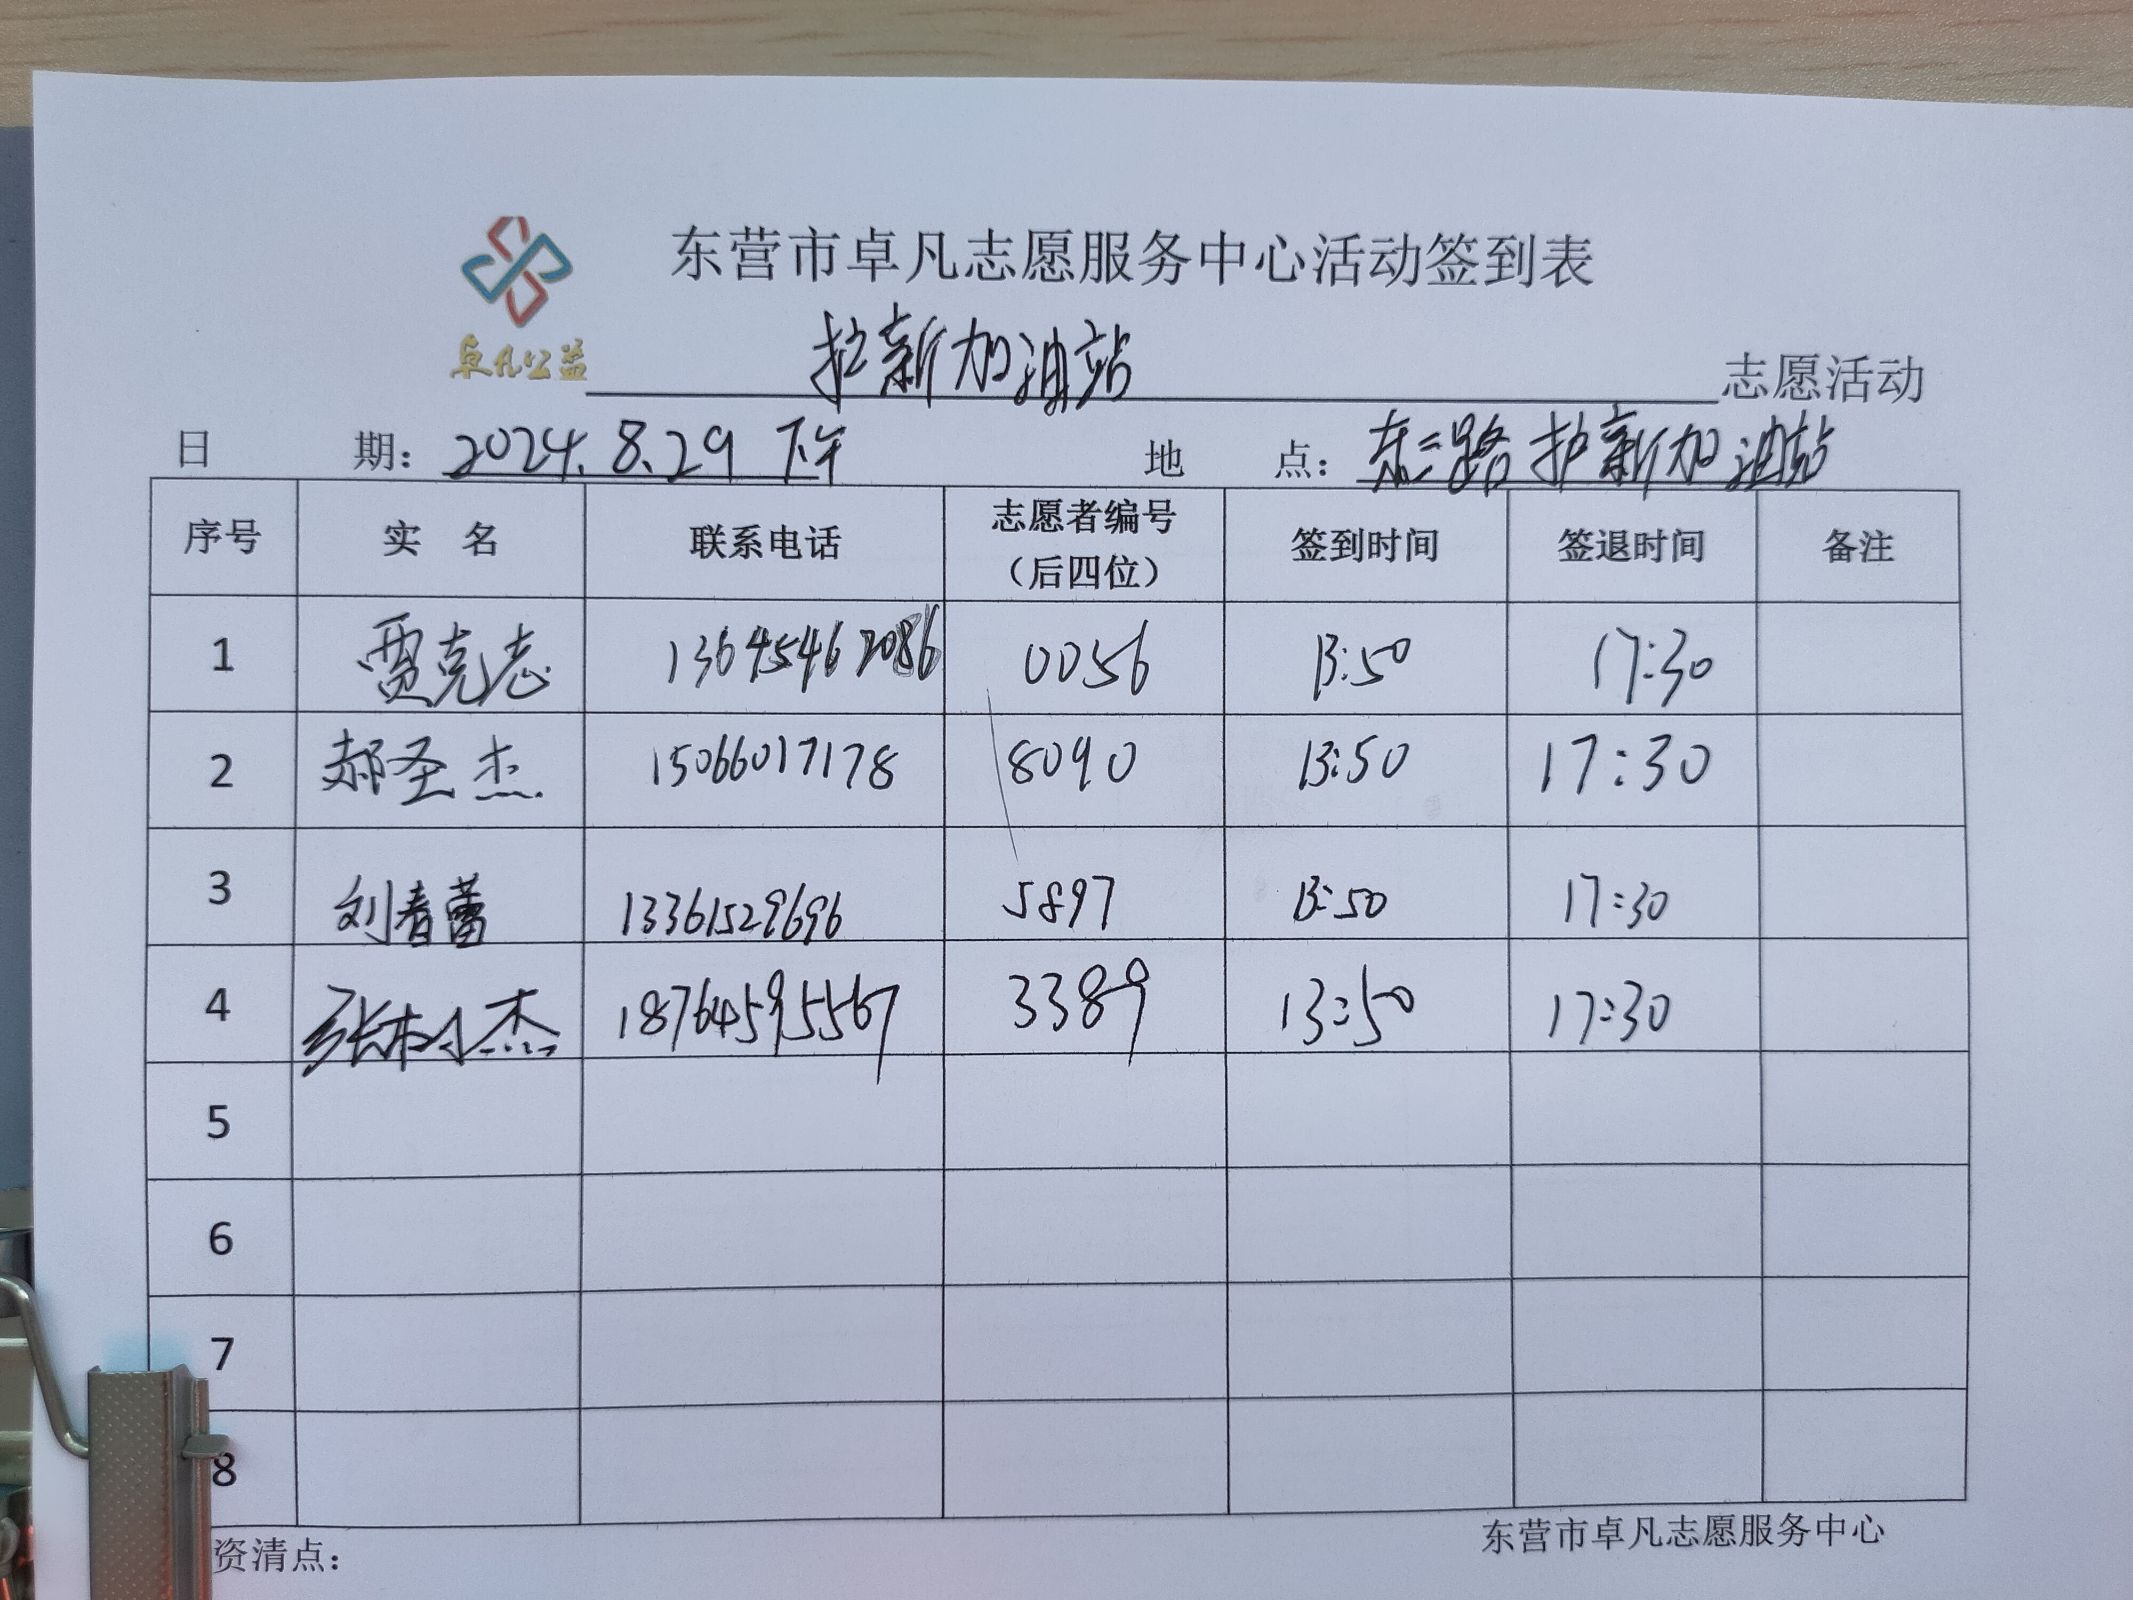 东营市卓凡志愿服务中心活动签到表
卓凡公益 护新加油站 志愿活动
日 期：2024.8.29 下午 地 点：东三路护新加油站
序号 实 名 联系电话 志愿者编号（后四位） 签到时间 签退时间 备注
1 贾克志 13645462086 0056 13:50 17:30
2 郝圣杰 15066017178 8090 13:50 17:30
3 刘春蕾 13361529696 5897 13:50 17:30
4 张树杰 18764595567 3389 13:50 17:30
5
6
7
8
资清点：
东营市卓凡志愿服务中心